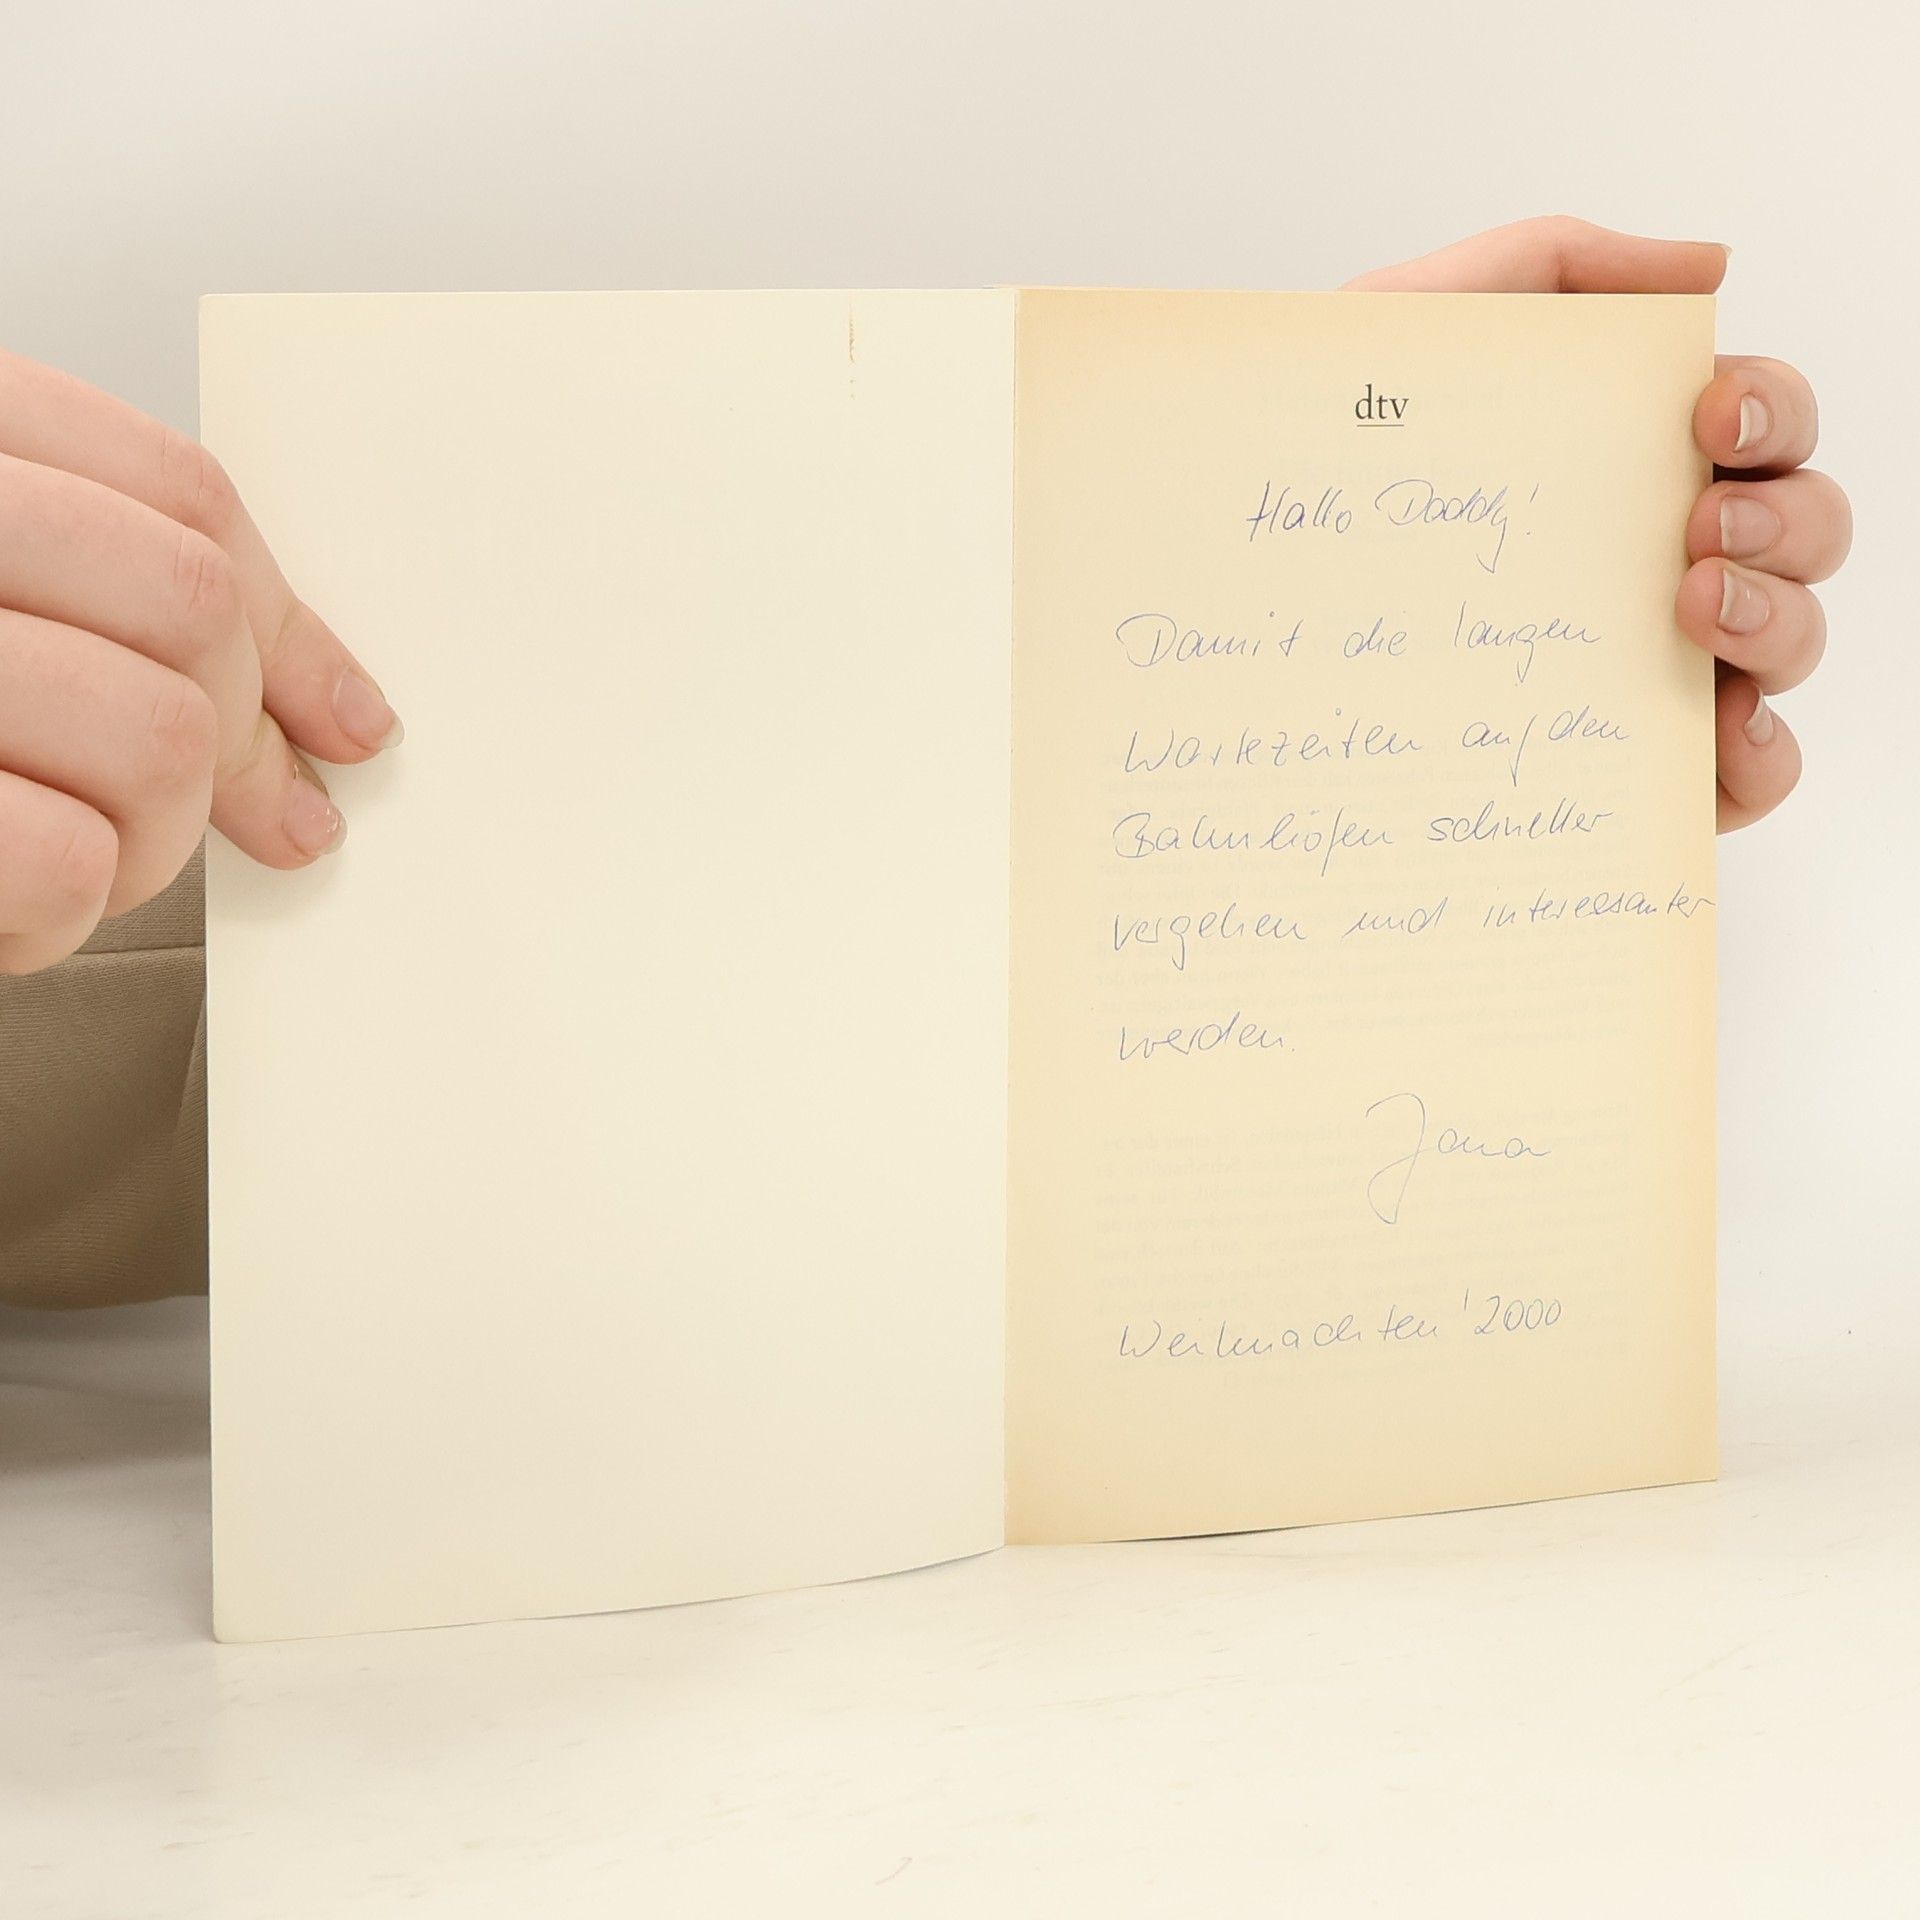 dtv
Hallo Daddy!
Damit die langen
Wartezeiten auf den
Bahnhöfen schneller
vergehen und interessanter
werden.
Jana
Weihnachten '2000